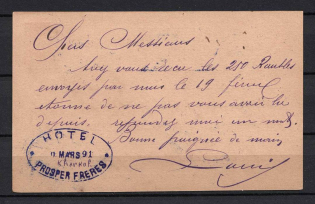 Chers Messieurs
Avez vous reçu les 210 Roubles
envoyés par nous le 19
étonné de ne pas vous avoir lu
depuis. répondez moi un mot
Bonne poignée de main
HÔTEL
MARS 91
PROSPER FRERES